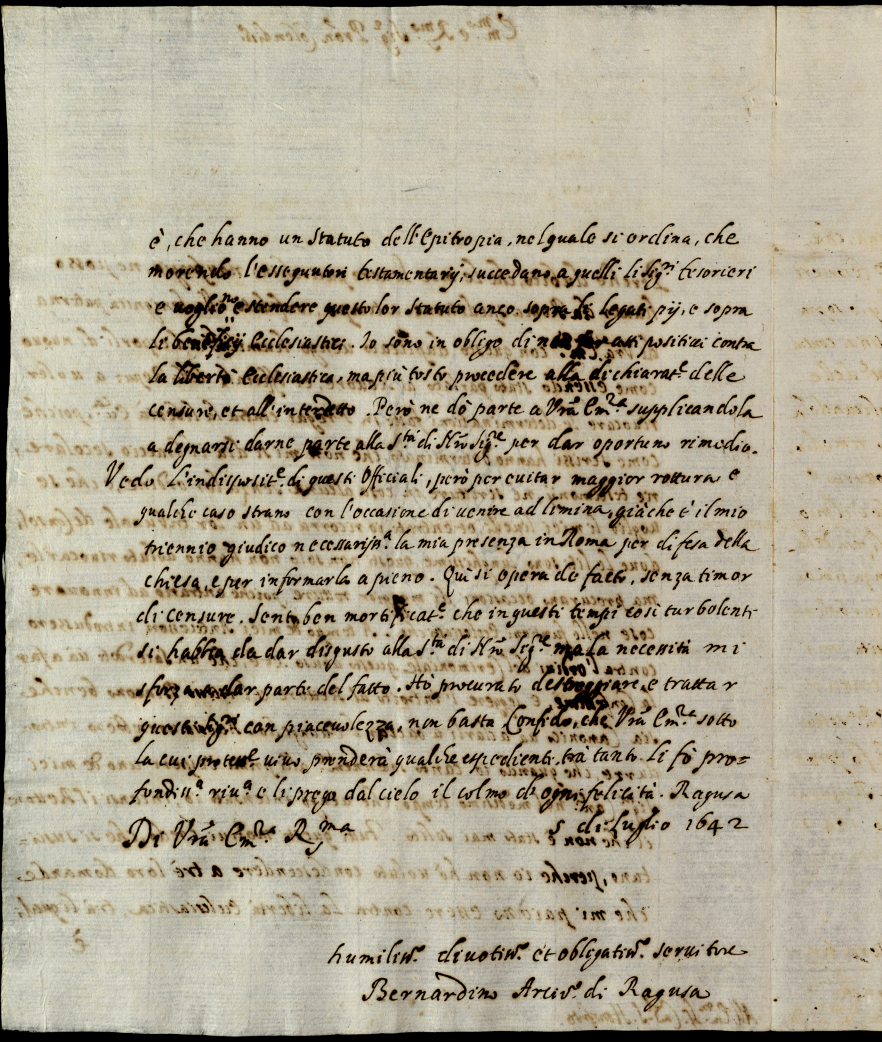 è, che hanno un statuto dell'Epitropia, nel quale si ordina, che
morendo l'essegutori testamentarij, succedano a quelli li Sig.ri tesorieri
e voglio.no estendere questo lor statuto anco sopra li legati pij, e sopra
li beneficij Ecclesiastici. Io sono in obligo di atti positivi contra
la libertà Ecclesiastica, ma più tosto procedere alla dichiarat.e delle
censure, et all'interdetto. Però ne dò parte a Vrã Em.za supplicandola
a degnarsi darne parte alla S.tà di Nrõ Sig.re per dar oportuno rimedio.
Vedo l'indisposit.e di questi Officiali, però per evitar maggior rottura e
qualche caso strano con l'occasione di venire ad limina, già che è il mio
triennio giudico necessariss.a la mia presenza in Roma per difesa della
chiesa, e per informarla a pieno. Qui si opera de facto, senza timor
di censure. Sento ben mortificat.e che in questi tempi così turbolenti
si habbia da dar disgusto alla S.tà di Nrõ Sig.re ma la necessità mi
sforza a dar parte del fatto. Hò procurato e trattar
questi con piacevolezza, non basta. Confido, che Vrã Em.za sotto
la cui protett.e vivo prenderà qualche espediente, trà tanto li fò pro=
fondiss.a riv.a e li prego dal cielo il colmo d'ogni felicità. Ragusa
5 di luglio 1642
Di Vrã Em.za R.ma
humiliss.o divotiss.o et obligatiss.o servitore
Bernardino Arciv.o di Ragusa